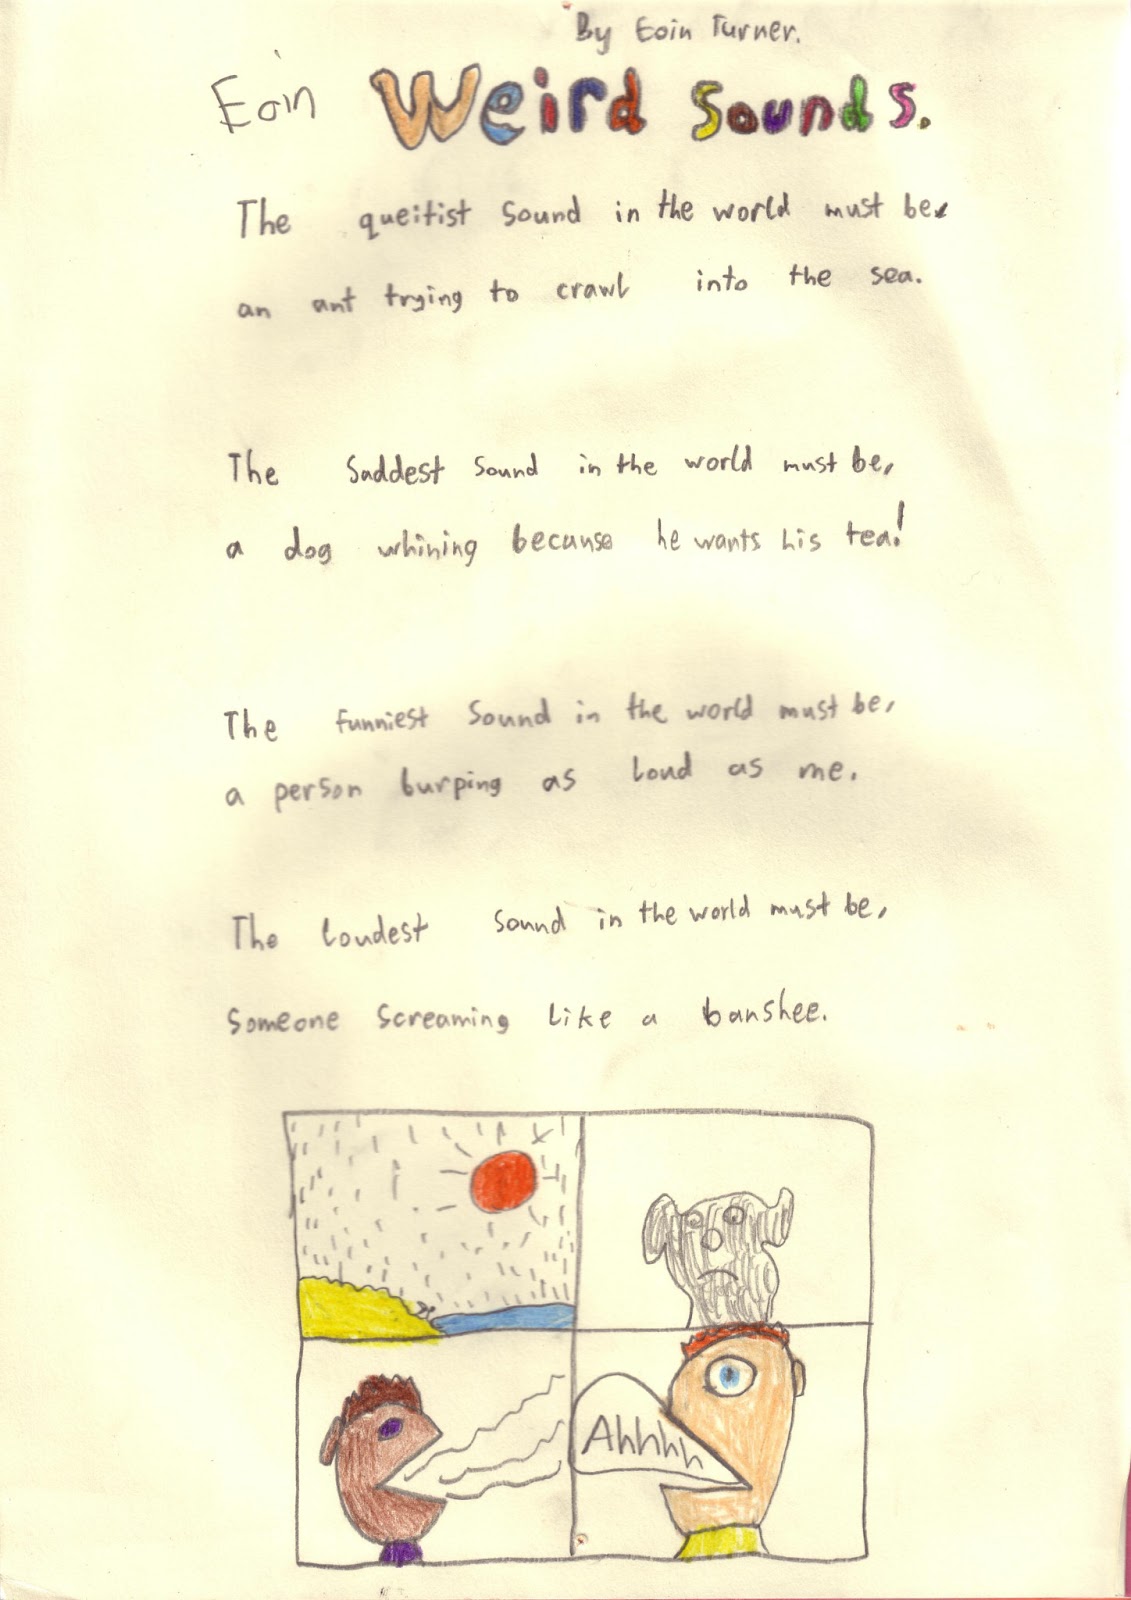 By Eoin Turner.
Eoin Weird Sounds.
The queitist sound in the world must be,
an ant trying to crawl into the sea.
The saddest sound in the world must be,
a dog whining because he wants his tea!
The funniest sound in the world must be,
a person burping as loud as me.
The loudest sound in the world must be,
someone screaming like a banshee.
Ahhhh